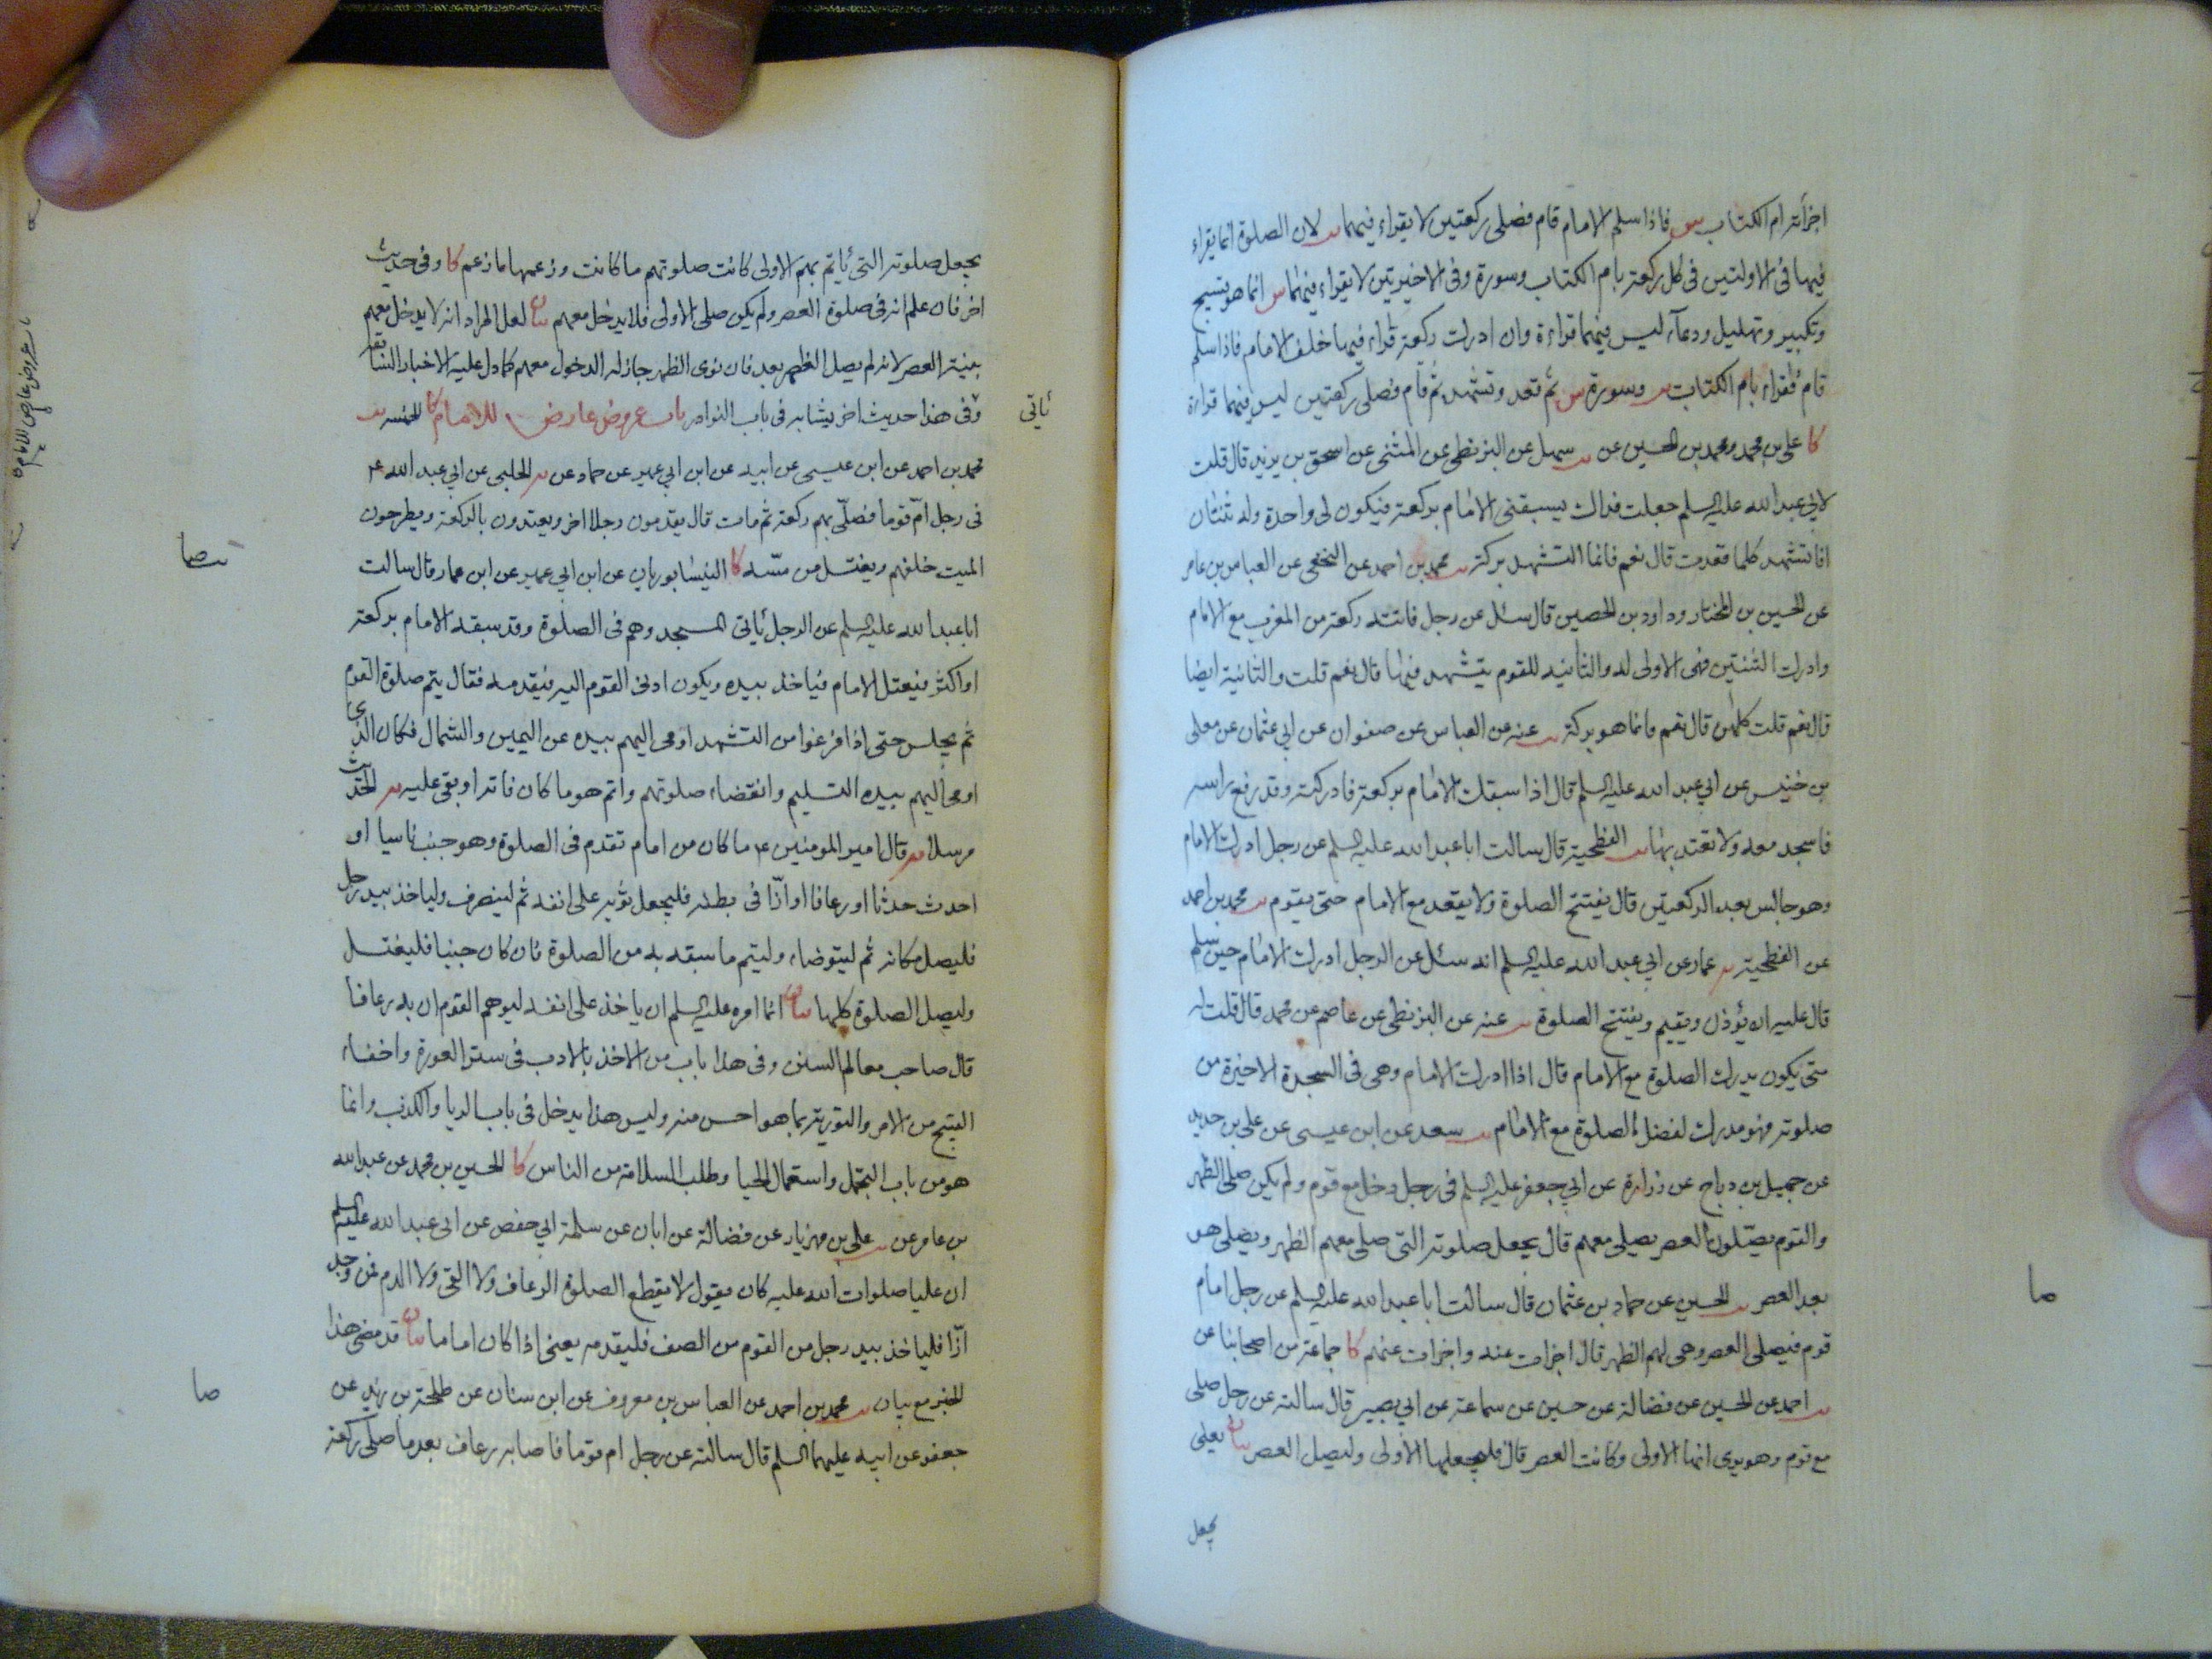 اجزأته ام الكتاب فاذا سلم الامام قام فصلى ركعتين لا يقراء فيهما لان الصلوة انما يقراء
فيها فى الاولتين فى كل ركعة بام الكتاب وسورة وفى الاخيرتين لا يقراء فيهما انما هو تسبيح
وتكبير وتهليل ودعاء ليس فيهما قراءة وان ادرك ركعة قراء فيها خلف الامام فاذا سلم
قام فقراء بام الكتاب وسورة ثم قعد وتشهد ثم قام فصلى ركعتين ليس فيهما قراءة
كا على بن محمد ومحمد بن الحسين عن سهل عن البزنطى عن المثنى عن اسحق بن يزيد قال قلت
لابي عبد الله عليه السلم جعلت فداك يسبقنى الامام بركعة فيكون لى واحدة وله ثنتان
افاتشهد كلما قعدت قال نعم فانما التشهد بركة محمد بن احمد عن النخعى عن العباس بن عامر
عن الحسين بن المختار وداود بن الحصين قال سئل عن رجل فاتته ركعة من المغرب مع الامام
وادرك الثنتين فهى الاولى له والثانية للقوم يتشهد فيها قال نعم قلت والثانية ايضا
قال نعم قلت كلهن قال نعم فانما هو بركة عنه عن العباس عن صفوان عن ابي عثمان عن معلى
بن خنيس عن ابي عبد الله عليه السلم قال اذا سبقك الامام بركعة فادركته وقد رفع راسه
فاسجد معه ولا تعتد بها الفطحية قال سالت ابا عبد الله عليه السلم عن رجل ادرك الامام
وهو جالس بعد الركعتين قال يفتتح الصلوة ولا يقعد مع الامام حتى يقوم محمد بن احمد
عن الفطحية عمار عن ابي عبد الله عليه السلم انه سئل عن الرجل ادرك الامام حين سلم
قال عليه ان يؤذن ويقيم ويفتتح الصلوة عنه عن البزنطى عن عاصم عن محمد قال قلت له
متى يكون يدرك الصلوة مع الامام قال اذا ادرك الامام وهى فى السجدة الاخيرة من
صلوته فهو مدرك لفضل الصلوة مع الامام سعد عن ابن عيسى عن على بن حديد
عن جميل بن دراج عن زرارة عن ابي جعفر عليه السلم فى رجل دخل مع قوم ولم يكن صلى الظهر
والقوم يصلون العصر يصلى معهم قال يجعل صلوته التى صلى معهم الظهر ويصلى هو
بعد العصر الحسين عن حماد بن عثمان قال سالت ابا عبد الله عليه السلم عن رجل امام
قوم فيصلى العصر وهى لهم الظهر قال اجزات عنه واجزات عنهم كا جماعة من اصحابنا عن
احمد عن الحسين عن فضالة عن حسين عن سماعة عن ابي بصير قال سالته عن رجل صلى
مع قوم وهو يرى انها الاولى وكانت العصر قال فليجعلها الاولى وليصل العصر بيان يعنى
يجعل
يجعل صلوته التى ياتم بهم الاولى كانت صلوتهم ما كانت وزعمها ما زعم كا وفى حديث
اخر فان علم انه فى صلوة العصر ولم يكن صلى الاولى فلا يدخل معهم بيان لعل المراد انه لا يدخل معهم
بنية العصر لانه لم يصل الظهر بعد فان نوى الظهر جاز له الدخول معهم كما دل عليه الاخبار السابقة
وفى هذا حديث اخر يشابه فى باب النوادر باب عروض عارض للامام كا الخمسة
ياتى
محمد بن احمد عن ابن عيسى عن ابيه عن ابن ابي عمير عن حماد عن الحلبى عن ابي عبد الله ع
فى رجل ام قوما فصلى بهم ركعة ثم مات قال يقدمون رجلا اخر ويعتدون بالركعة ويطرحون
الميت خلفهم ويغتسل من مسه كا النيسابوريان عن ابن ابي عمير عن ابن عمار قال سالت
ابا عبد الله عليه السلم عن الرجل ياتى المسجد وهم فى الصلوة وقد سبقه الامام بركعة
او اكثر فيعتل الامام فياخذ بيده ويكون ادنى القوم اليه فيقدمه فقال يتم صلوة القوم
ثم يجلس حتى اذا فرغوا من التشهد اومى اليهم بيده عن اليمين والشمال فكان الذى
اومى اليهم بيده التسليم وانقضاء صلوتهم واتم هو ما كان فاته او بقى عليه الحديث
مرسلا قال امير المومنين ع ما كان من امام تقدم فى الصلوة وهو جنب ناسيا او
احدث حدثا او رعافا او ازا فى بطنه فليجعل ثوبه على انفه ثم لينصرف ولياخذ بيد رجل
فليصل مكانه ثم ليتوضاء وليتم ما سبقه به من الصلوة فان كان جنبا فليغتسل
وليصل الصلوة كلها بيان انما امره عليه السلم ان ياخذ على انفه ليوهم القوم ان به رعافا
قال صاحب معالم السنن وفى هذا باب من الاخذ بالادب فى ستر العورة واخفاء
القبيح من الامر والتورية بما هو احسن منه وليس هذا يدخل فى باب الريا والكذب وانما
هو من باب التجمل واستعمال الحيا وطلب السلامة من الناس كا الحسين بن محمد عن عبد الله
بن عامر عن على بن مهزيار عن فضالة عن ابان عن سلمة ابي حفص عن ابي عبد الله عليه السلم
ان عليا صلوات الله عليه كان يقول لا يقطع الصلوة الرعاف ولا القئ ولا الدم فمن وجد
ازا فلياخذ بيد رجل من القوم من الصف فليقدمه يعنى اذا كان اماما بيان قد مضى هذا
الخبر مع بيان محمد بن احمد عن العباس بن معروف عن ابن سنان عن طلحة بن زيد عن
جعفر عن ابيه عليهما السلم قال سالته عن رجل ام قوما فاصابه رعاف بعد ما صلى ركعة
باب عروض عارض للامام